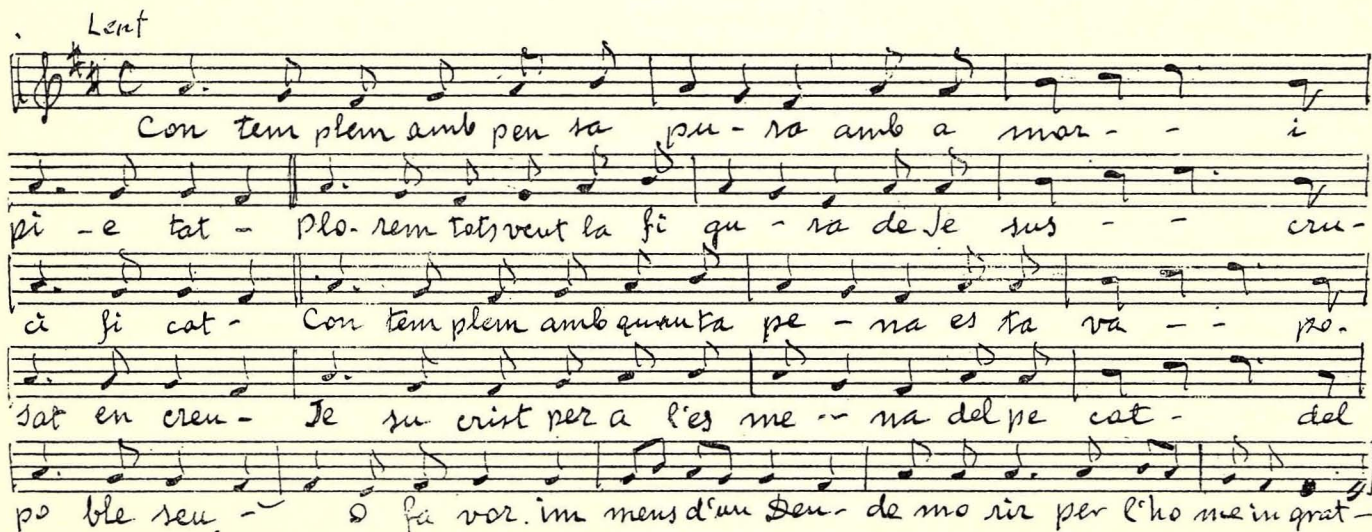 Lent
Con tem plem amb pen sa pu - ra amb a mor - - i
pi - e tat - Plo - rem tots vent la fi gu - ra de Je sus - - cru -
ci fi cat - Con tem plem amb quanta pe - na es ta va - - po.
sat en creu - Je su crist per a l'es me - - na del pe cat - del
po ble seu - O fa vor. im mens d'un Deu - de mo rir per l'ho me in grat -